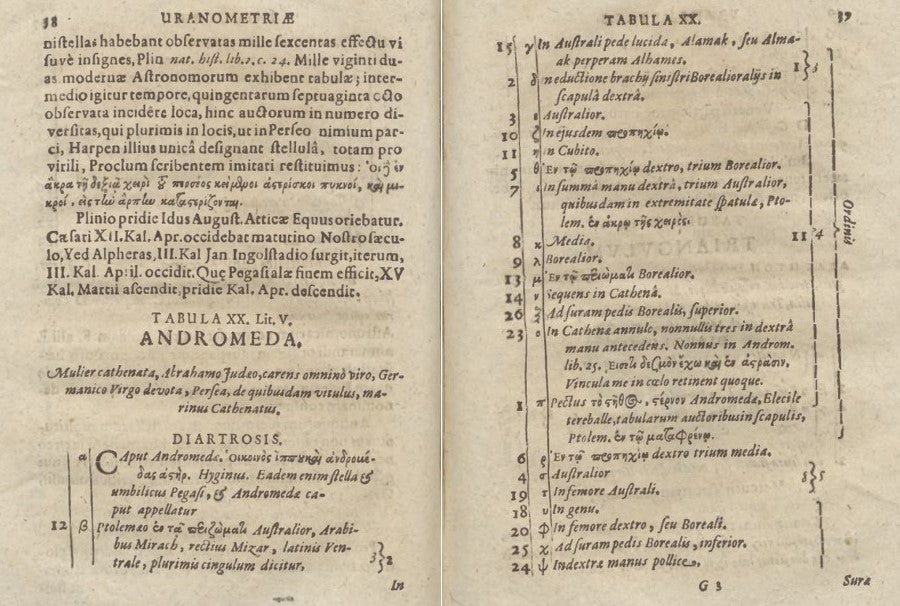 38 URANOMETRIÆ
nistellas habebant observatas mille sexcentas effectu vi
suvè insignes, Plin nat. hist. lib. 2. c. 24. Mille viginti du-
as modernæ Astronomorum exhibent tabulæ; inter-
medio igitur tempore, quingentarum septuaginta octo
observata incidêre loca, hinc auctorum in numero di-
versitas, qui plurimis in locis, ut in Perseo nimium par-
ci, Harpen illius unicâ designant stellulâ, totam pro
virili, Proclum scribentem imitati restituimus:
ἄκρα τῇ δεξιᾷ χειρὶ
Plinio pridie Idus August. Atticæ Equus oriebatur.
Cæsari XII. Kal. Apr. occidebat matutino Nostro sæcu-
lo, Yed Alpheras, III. Kal Jan Ingolstadio surgit, iterum,
III. Kal April. occidit. Que Pegasi alæ finem efficit, XV
Kal. Martii ascendit, pridie Kal. Apr. descendit.
TABULA XX. Lit. V.
ANDROMEDA.
Mulier cathenata, Abrahamo Judæo, carens omninò viro, Ger-
manico Virgo devota, Persea, de quibusdam vitulus, ma-
rinus Cathenatus.
DIARTROSIS.
α Caput Andromedæ.
Hyginus. Eadem enim stella &
umbilicus Pegasi, & Andromedæ ca-
put appellatur
12 β Ptolemæo Australior, Arabi-
bus Mirach, rectius Mizar, latinis Ven-
trale, plurimis cingulum dicitur, 3 } 2
In
TABULA XX. 39
15 γ In Australi pede lucida, Alamak, seu Alma-
ak perperam Alhames. 1 } 3
2 δ In eductione brachij sinistri Borealior alijs in
scapulâ dextrâ.
3 ε Australior.
10 ζ In ejusdem
11 η In Cubito.
5 θ Ἐν τῷ dextro, trium Borealior.
7 ι In summâ manu dextrâ, trium Australior,
quibusdam in extremitate spatulæ, Pto-
lem. ἐν ἄκρῳ τῆς χειρὸς.
Ordinis
8 κ Media. 11 4
9 λ Borealior.
13 μ Ἐν τῷ Borealior.
14 ν Sequens in Cathenâ.
26 ξ Ad suram pedis Borealis, superior.
23 ο In Cathenæ annulo, nonnullis tres in dextrâ
manu antecedens. Nonnus in Androm.
lib. 25.
Vincula me in cœlo retinent quoque.
1 π Pectus τὸ στῆθος, στέρνον Andromedæ, Elecile
tereballe, tabularum auctoribus in scapulis,
Ptolem. ἐν τῷ μεταφρένῳ.
6 ρ Ἐν τῷ dextro trium media.
4 σ Australior 5 } 5
19 τ In femore Australi.
18 υ In genu.
20 φ In femore dextro, seu Boreali.
25 χ Ad suram pedis Borealis, inferior.
24 ψ In dextræ manus pollice.
G 3 Suræ